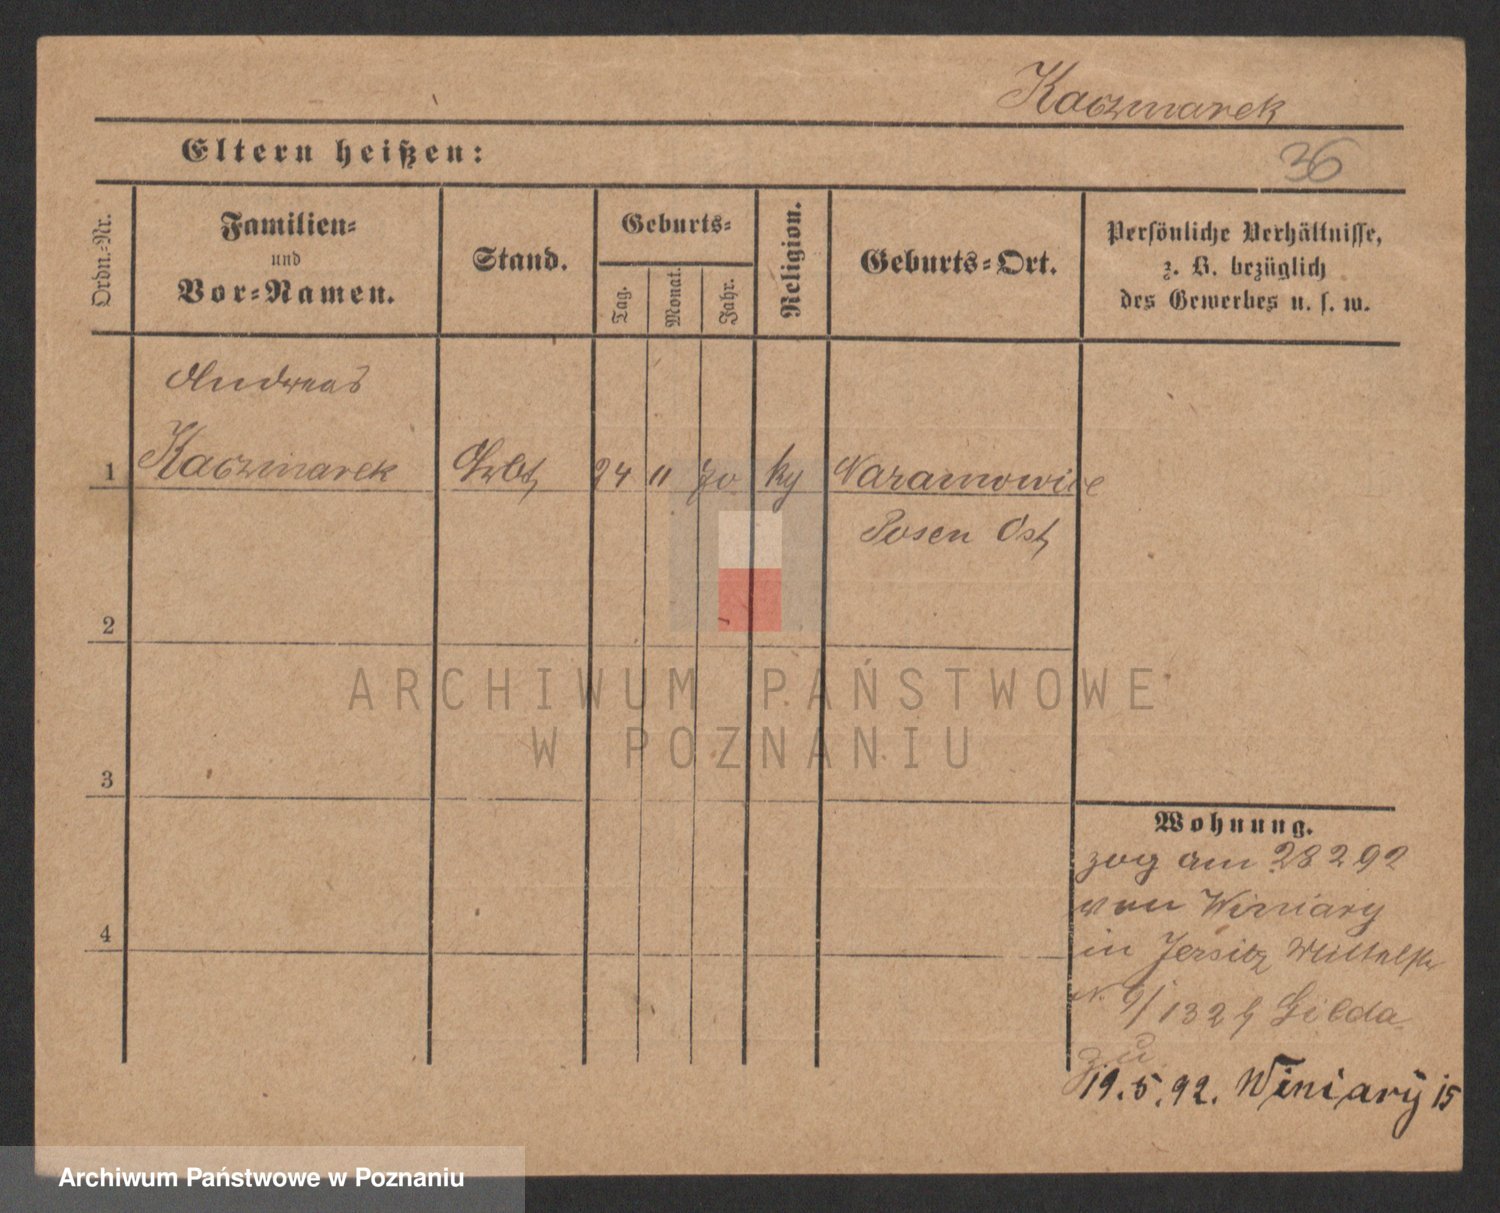 Kaczmarek
Eltern heißen:
36
Ordn.-Nr.
Familien-
und
Vor-Namen.
Stand.
Geburts-
Tag.
Monat.
Jahr.
Religion.
Geburts-Ort.
Persönliche Verhältnisse,
z. B. bezüglich
des Gewerbes u. s. w.
Andreas
1 Kaczmarek Arbt 24 11 70 kg Naramowice
Posen Ost
2
ARCHIWUM PAŃSTWOWE
W POZNANIU
3
4
Wohnung.
zog am 28 2 92
von Winiary
in Jersitz
N. 9/132 b Gilda
zu
19.5.92. Winiary 15
Archiwum Państwowe w Poznaniu